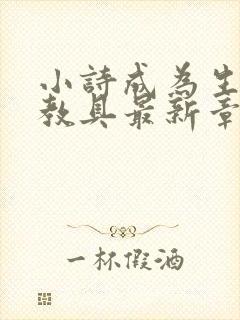 小詩成為生
教具最新章
一杯假酒